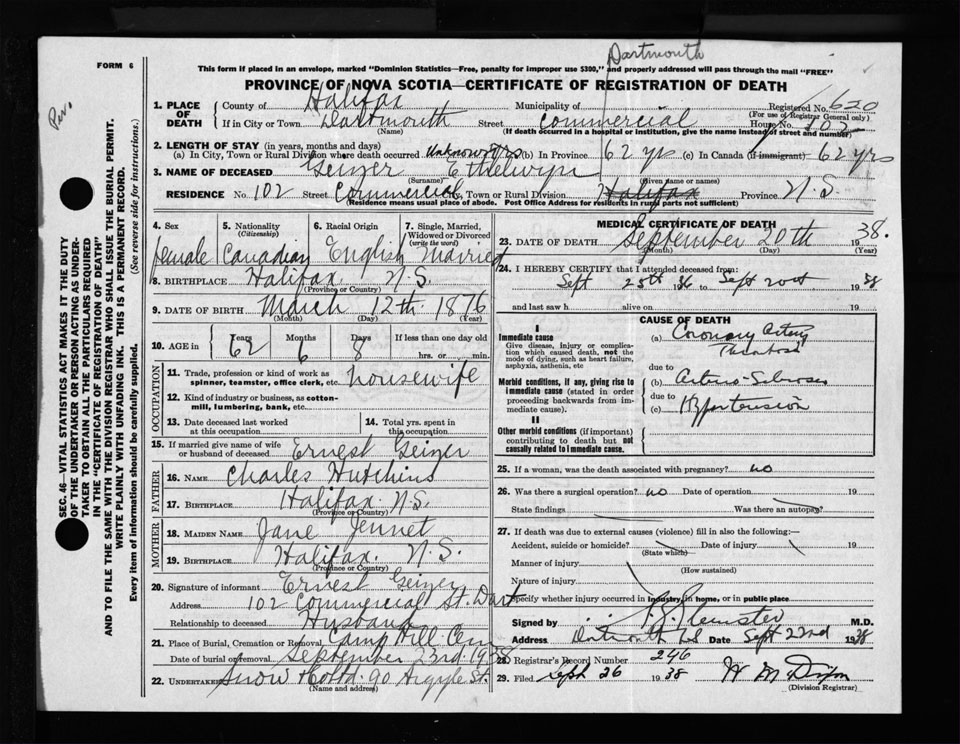 Dartmouth
FORM 6
This form if placed in an envelope, marked "Dominion Statistics—Free, penalty for improper use $300," and properly addressed will pass through the mail "FREE"
PROVINCE OF NOVA SCOTIA—CERTIFICATE OF REGISTRATION OF DEATH
1. PLACE OF DEATH County of Halifax Municipality of Registered No. 620
(For use of Registrar General only)
If in City or Town Dartmouth Street Commercial House No. 102
(Name) (If death occurred in a hospital or institution, give the name instead of street and number)
2. LENGTH OF STAY (in years, months and days)
(a) In City, Town or Rural Division where death occurred Unknown yrs (b) In Province 62 yrs (c) In Canada (if immigrant) 62 yrs
3. NAME OF DECEASED Geizer Ethelwyn
(Surname) (Given name or names)
RESIDENCE No. 102 Street Commercial City, Town or Rural Division Halifax Province N.S.
(Residence means usual place of abode. Post Office Address for residents in rural parts not sufficient)
4. Sex 5. Nationality 6. Racial Origin 7. Single, Married, Widowed or Divorced
(Citizenship) (write the word)
female Canadian English Married
8. BIRTHPLACE Halifax N.S.
(Province or Country)
9. DATE OF BIRTH March 12th 1876
(Month) (Day) (Year)
10. AGE in Years Months Days If less than one day old
62 6 8 hrs. or min.
OCCUPATION
11. Trade, profession or kind of work as spinner, teamster, office clerk, etc. housewife
12. Kind of industry or business, as cotton-mill, lumbering, bank, etc.
13. Date deceased last worked at this occupation 14. Total yrs. spent in this occupation
15. If married give name of wife or husband of deceased Ernest Geizer
FATHER
16. NAME Charles Hutchins
17. BIRTHPLACE Halifax N.S.
(Province or Country)
MOTHER
18. MAIDEN NAME Jane Jennet
19. BIRTHPLACE Halifax. N.S.
(Province or Country)
20. Signature of informant Ernest Geizer
Address 102 Commercial St. Dart
Relationship to deceased Husband
21. Place of Burial, Cremation or Removal Camp Hill Cem
Date of burial or removal September 23rd. 1938
22. UNDERTAKER Snow & Co Ltd. 90 Argyle St.
(Name and address)
MEDICAL CERTIFICATE OF DEATH
23. DATE OF DEATH September 20th 1938.
(Month) (Day) (Year)
24. I HEREBY CERTIFY that I attended deceased from
Sept 25th 36 to Sept 20th 1938
and last saw h alive on 19
CAUSE OF DEATH
I
Immediate cause (a) Coronary Artery
Give disease, injury or complication which caused death, not the mode of dying, such as heart failure, asphyxia, asthenia, etc
due to
Morbid conditions, if any, giving rise to immediate cause (stated in order proceeding backwards from immediate cause). (b) Arterio-Sclerosis
due to
(c) Hypertension
II
Other morbid conditions (if important) contributing to death but not causally related to immediate cause.
25. If a woman, was the death associated with pregnancy? no
26. Was there a surgical operation? no Date of operation 19
State findings Was there an autopsy?
27. If death was due to external causes (violence) fill in also the following:—
Accident, suicide or homicide? Date of injury 19
(State which)
Manner of injury
(How sustained)
Nature of injury
Specify whether injury occurred in industry, in home, or in public place
Signed by M.D.
Address Dartmouth N.S. Date Sept 22nd 1938
28. Registrar's Record Number 246
29. Filed Sept 26 1938
(Division Registrar)
Rev.
SEC. 46—VITAL STATISTICS ACT MAKES IT THE DUTY
OF THE UNDERTAKER OR PERSON ACTING AS UNDER-
TAKER TO OBTAIN ALL THE PARTICULARS REQUIRED
IN THE "CERTIFICATE OF REGISTRATION OF DEATH"
AND TO FILE THE SAME WITH THE DIVISION REGISTRAR WHO SHALL ISSUE THE BURIAL PERMIT.
WRITE PLAINLY WITH UNFADING INK. THIS IS A PERMANENT RECORD.
Every item of information should be carefully supplied. (See reverse side for instructions.)